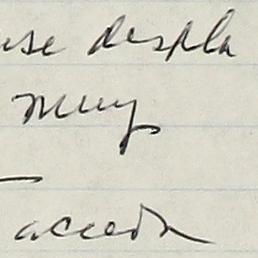 use despla
muy
acced